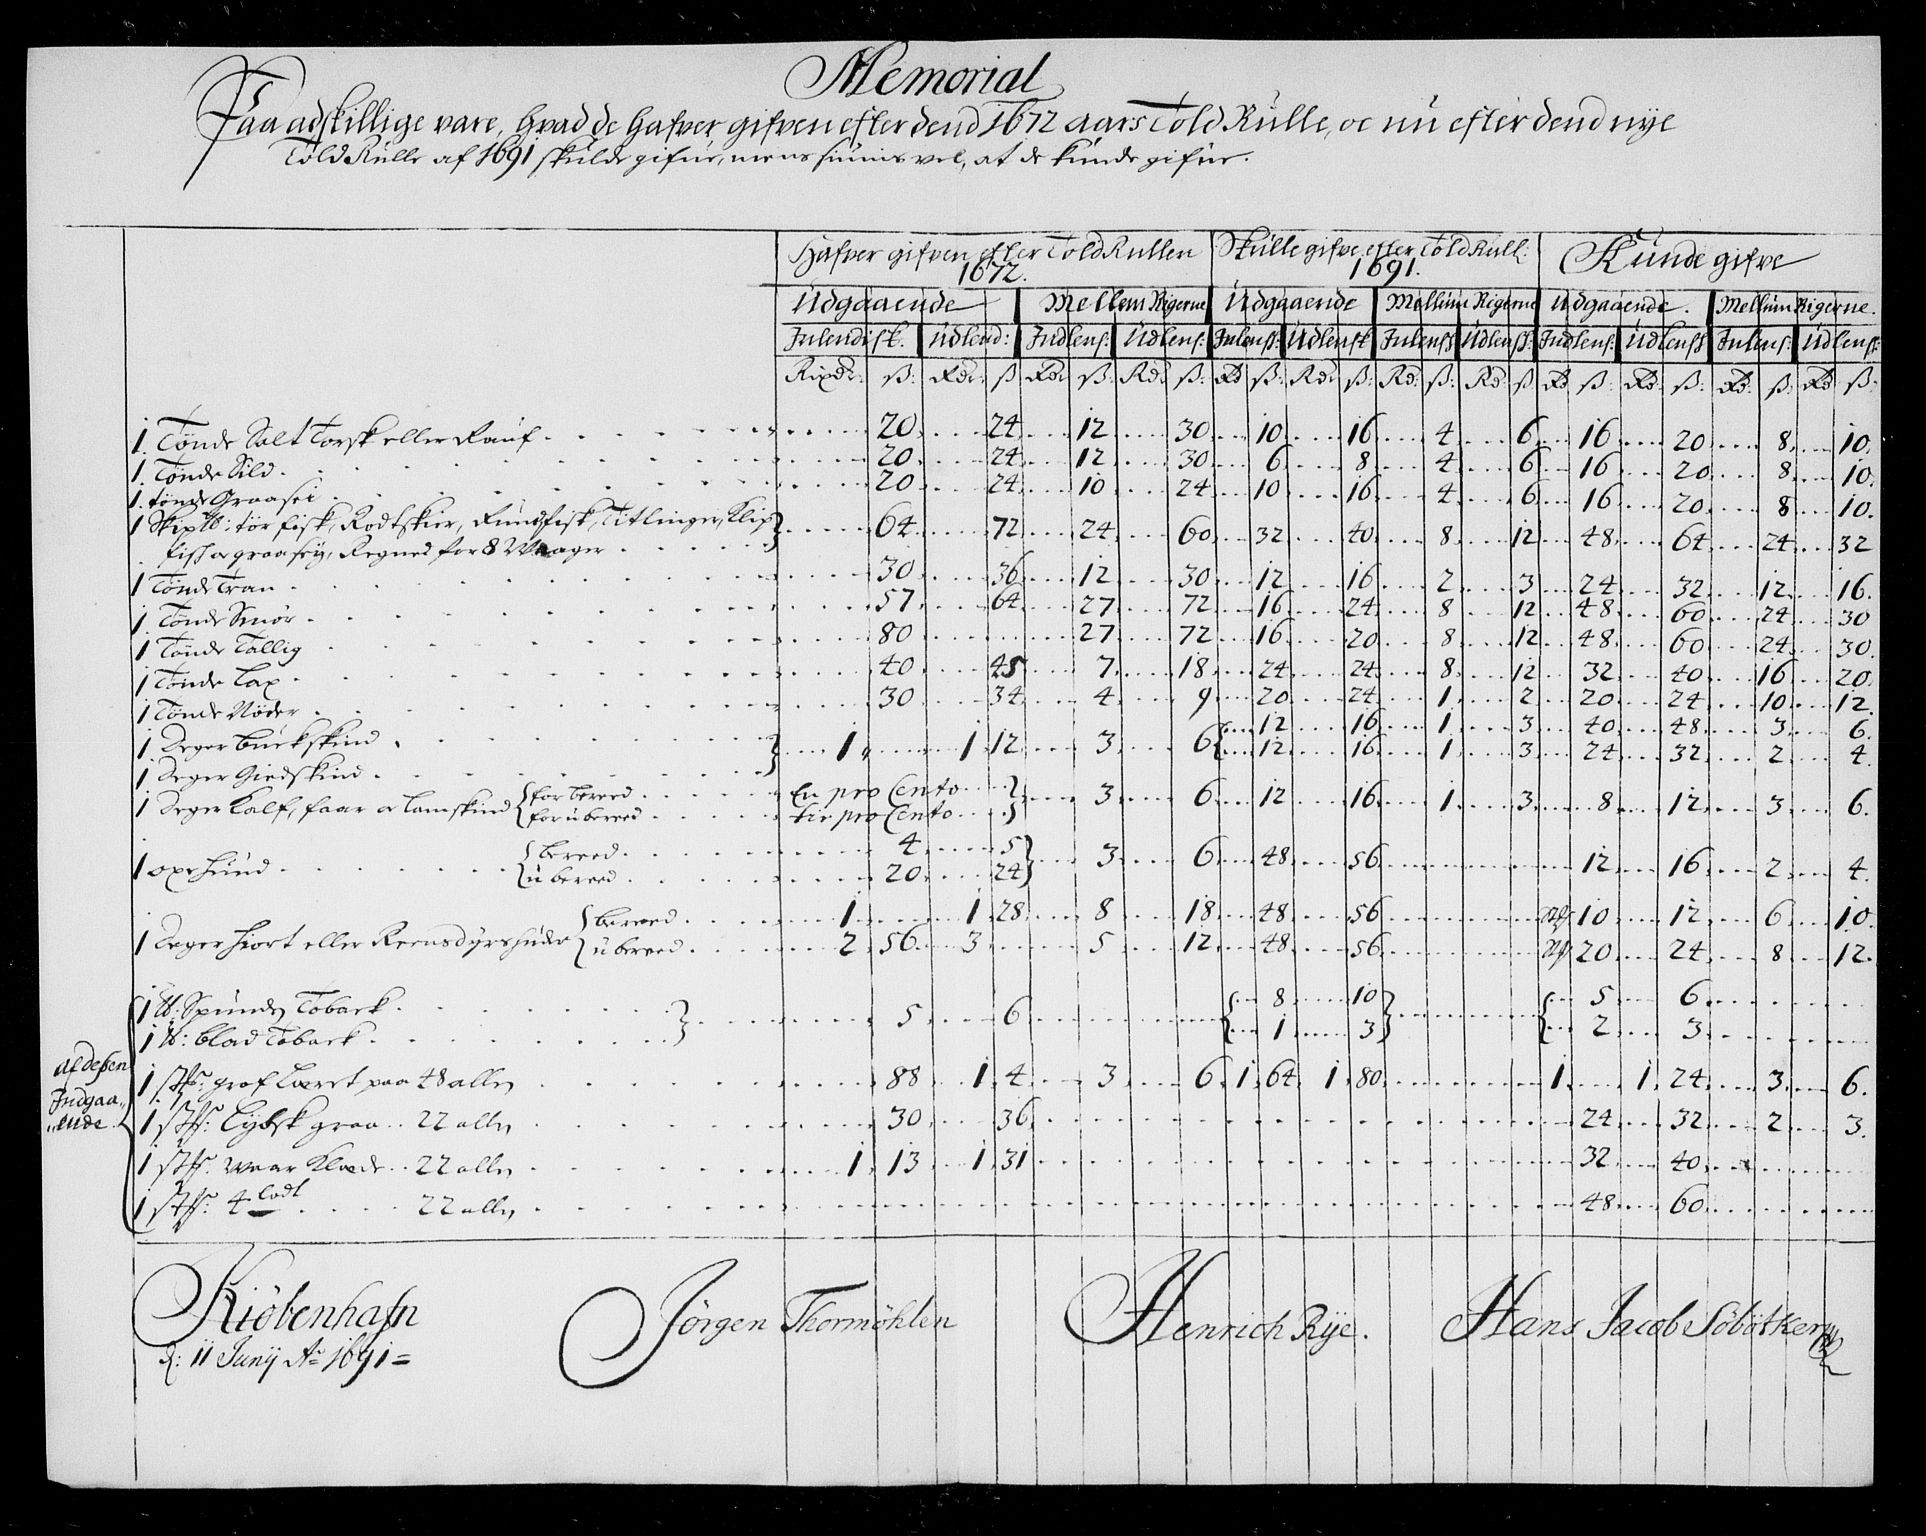 Memorial
Paa adskillige vare, hvad de hafver gifven efter dend 1672 aars Told Rulle, oc nu efter dend nye
Told Rulle af 1691 skulde gifue, mens siunis vel, at de kunde gifue.
Hafver gifven efter Told Rullen 1672. Skulle gifve efter Told Rull: 1691. Kunde gifve
Udgaaende Mellem Rigerne Udgaaende Mellum Rigerne Udgaaende. Mellum Rigerne.
Inlendisk. Udlend: Indlens: Udlens: Inlensk: Udlensk Inlensk Udlensk: Indlens: Udlensk Inlens: Udlensk:
Rixdr: ß: Rdr: ß Rdr ß: Rd: ß: Rd ß: Rd: ß: Rd: ß: Rd: ß Rd ß: Rd: ß: Rd: ß: Rd ß:
1. Tønde Salt Torsk eller Rauf 20 24 12 30 10 16 4 6 16 20 8 10.
1. Tønde Sild 20 24 12 30 6 8 4 6 16 20 8 10.
1. tønde Graasei 20 24 10 24 10 16 4 6 16 20 8 10.
1 Skip ℔: tør fisk, Rodtskier, Rundfisk, Titlinger, Klip
fisk oc graaseÿ, Regned for 8 Waager 64 72 24 60 32 40 8 12 48 64 24 32
1 Tønde Tran 30 36 12 30 12 16 2 3 24 32 12 16.
1 Tønde Smør 57 64 27 72 16 24 8 12 48 60 24 30
1 Tønde Tallig 80 27 72 16 20 8 12 48 60 24 30.
1 Tønde Lax 40 45 7 18 24 24 8 12 32 40 16 20.
1 Tønde Nøder 30 34 4 9 20 24 1 2 20 24 10 12.
1 Deger buckskind 12 16 1 3 40 48 3 6.
1 1 12 3 6
1 Deger Giedskind 12 16 1 3 24 32 2 4.
1 Deger Kalf, faar oc Lamskind { for bereed En pro Cento
for ubereed tie pro Cento 3 6 12 16 1 3 8 12 3 6.
1 oxe huud { bereed 4 5
ubereed 20 24 3 6 48 56 12 16 2 4.
1 Deger hiort eller Reensdyrshuder { bereed 1 1 28 8 18 48 56 10 12 6 10.
ubereed 2 56 3 5 12 48 56 20 24 8 12.
1 ℔: Spunden Toback 8 10 5 6
5 6
1 ℔: blad Toback 1 3 2 3
af deßen
Indgaa-
ende
1 stk: grof Lærret paa 48 allen 88 1 4 3 6 1 64 1 80 1 1 24 3 6.
1 stk: Lybsk graa 22 allen 30 36 24 32 2 3.
1 stk: Waar Klæde 22 allen 1 13 1 31 32 40
1 stk: 4 lodt 22 allen 48 60
Kiöbenhafn
d: 11 Junij Ao 1691=
Jörgen Thormöhlen
Henrich Rÿe.
Hans Jacob Söbötker